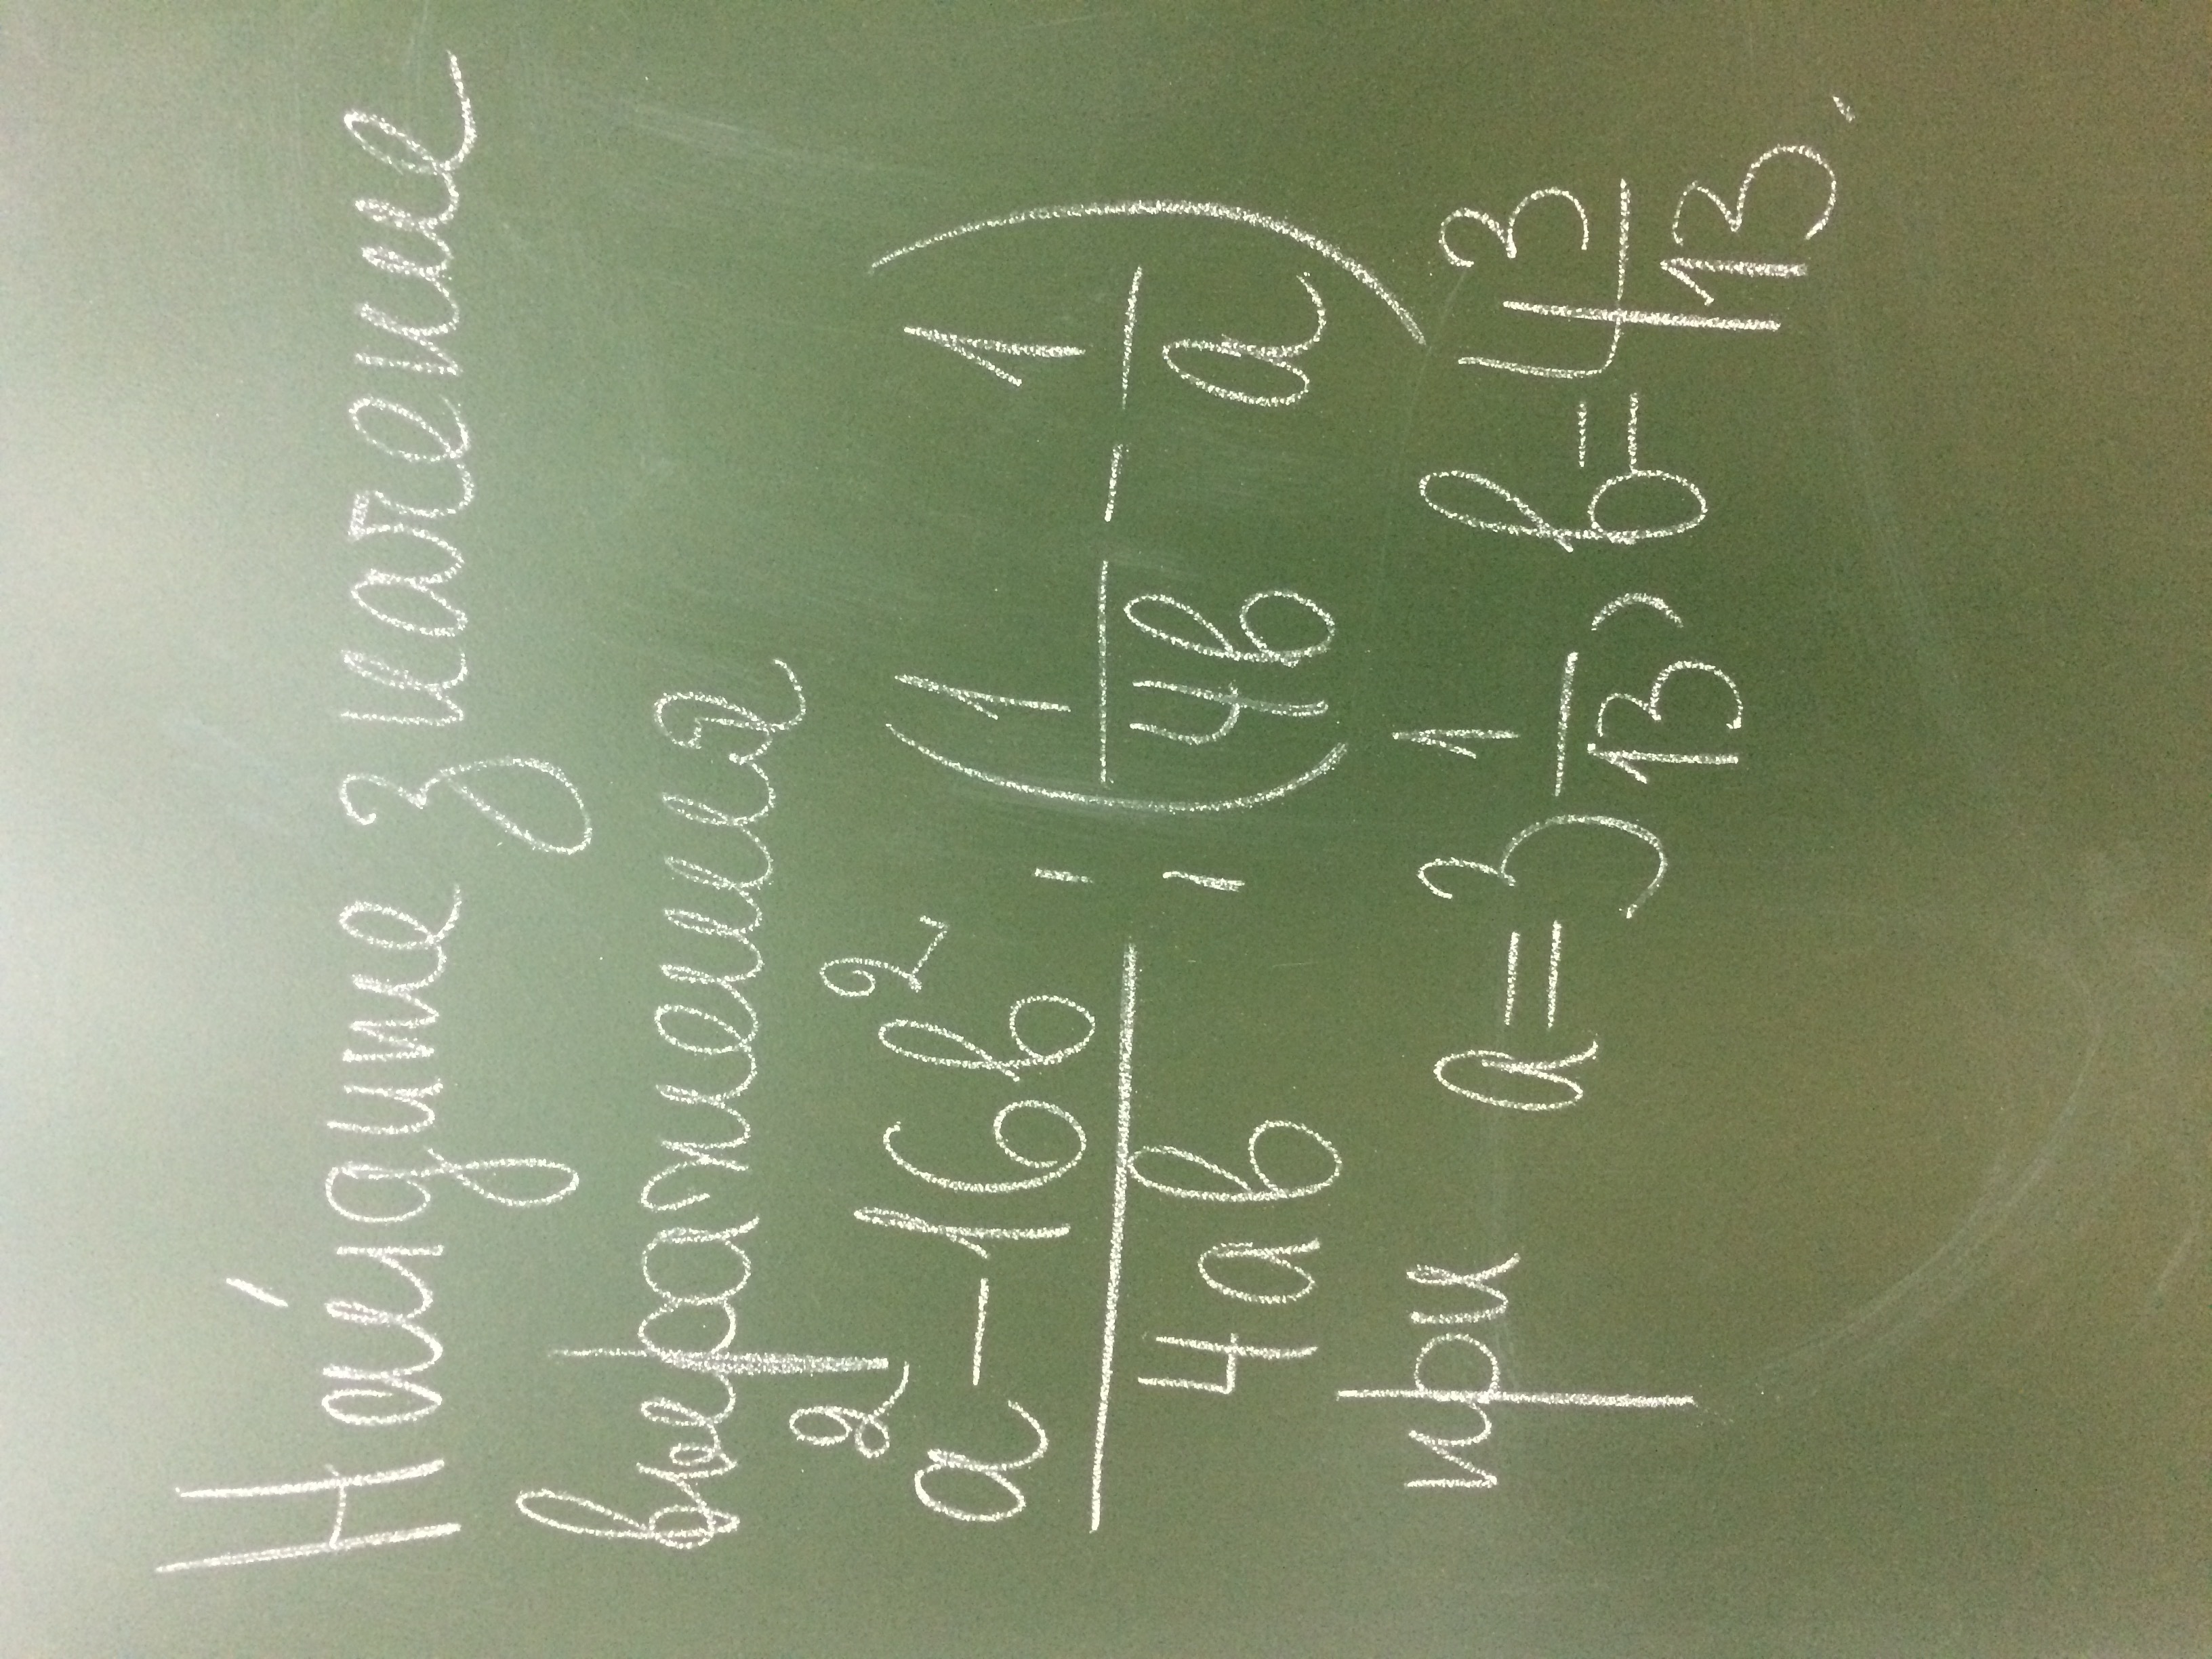 Найдите значение
выражения
(a² − 16b²)/(4ab) : (1/(4b) − 1/a)
при a = 3 1/13, b = 4 3/13.